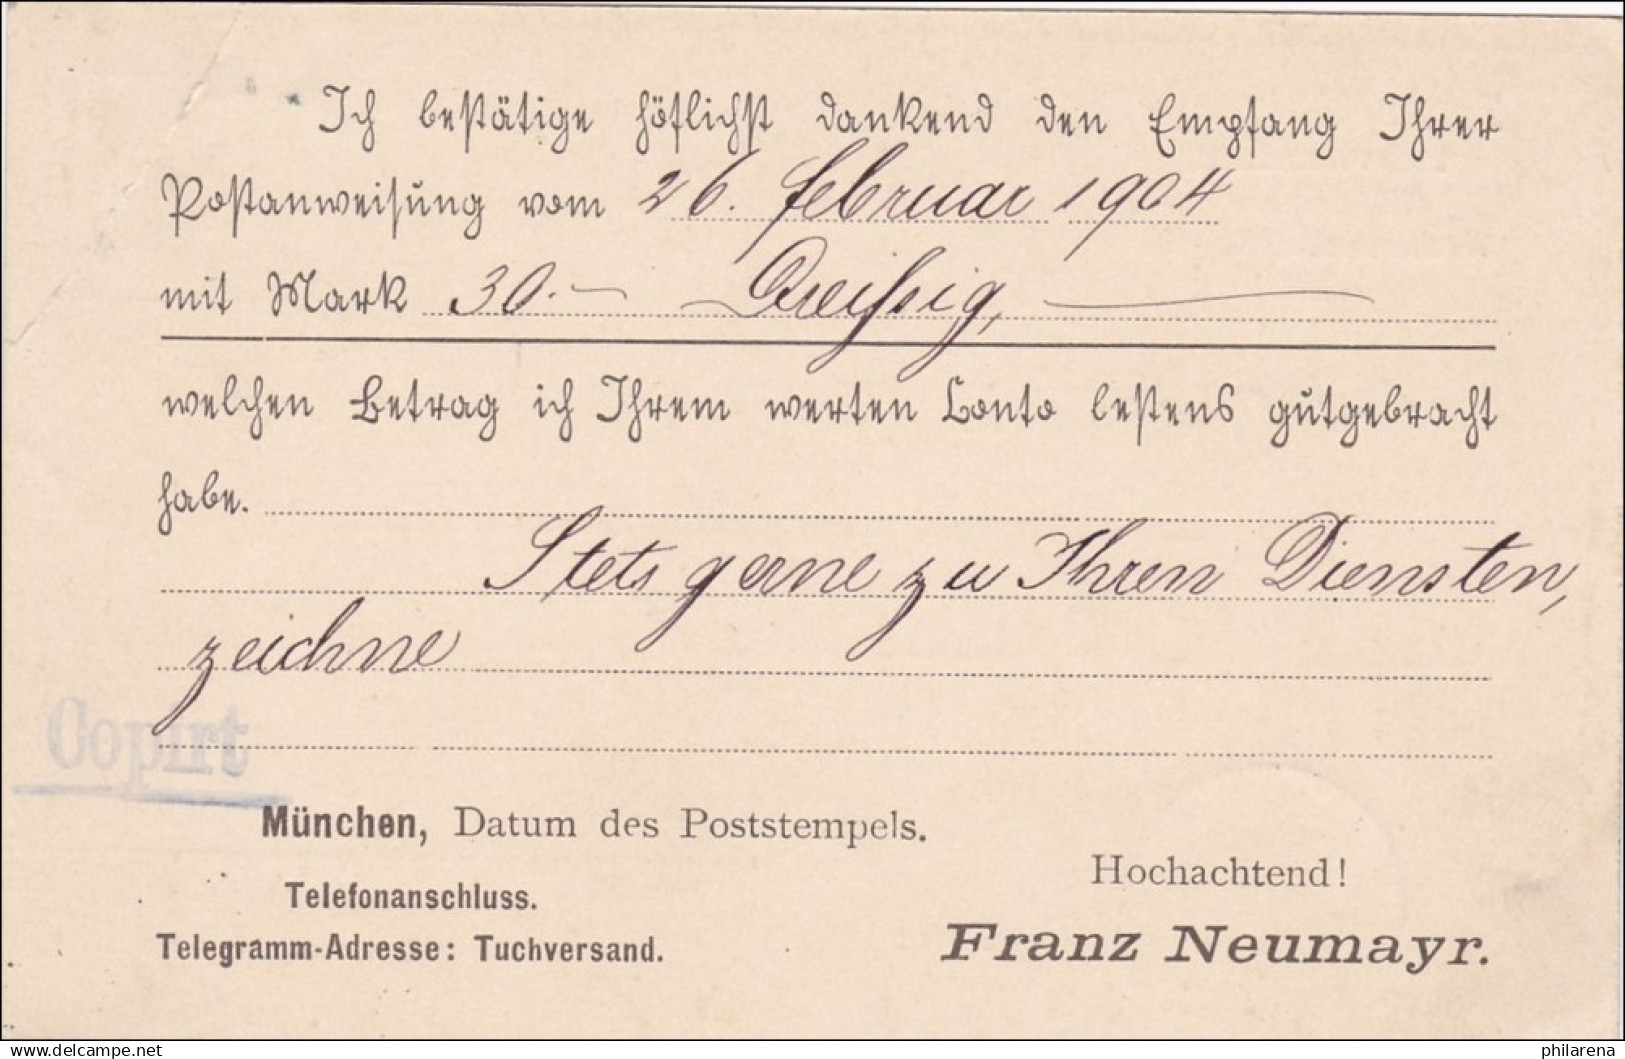 Ich bestätige höflichst dankend den Empfang Ihrer
Postanweisung vom 26. Februar 1904
mit Mark 30.– Dreissig,
welchen Betrag ich Ihrem werten Conto bestens gutgebracht
habe.
Stets gerne zu Ihren Diensten,
zeichne
Copirt
München, Datum des Poststempels.
Hochachtend!
Telefonanschluss.
Telegramm-Adresse: Tuchversand.
Franz Neumayr.
www.delcampe.net
philarena